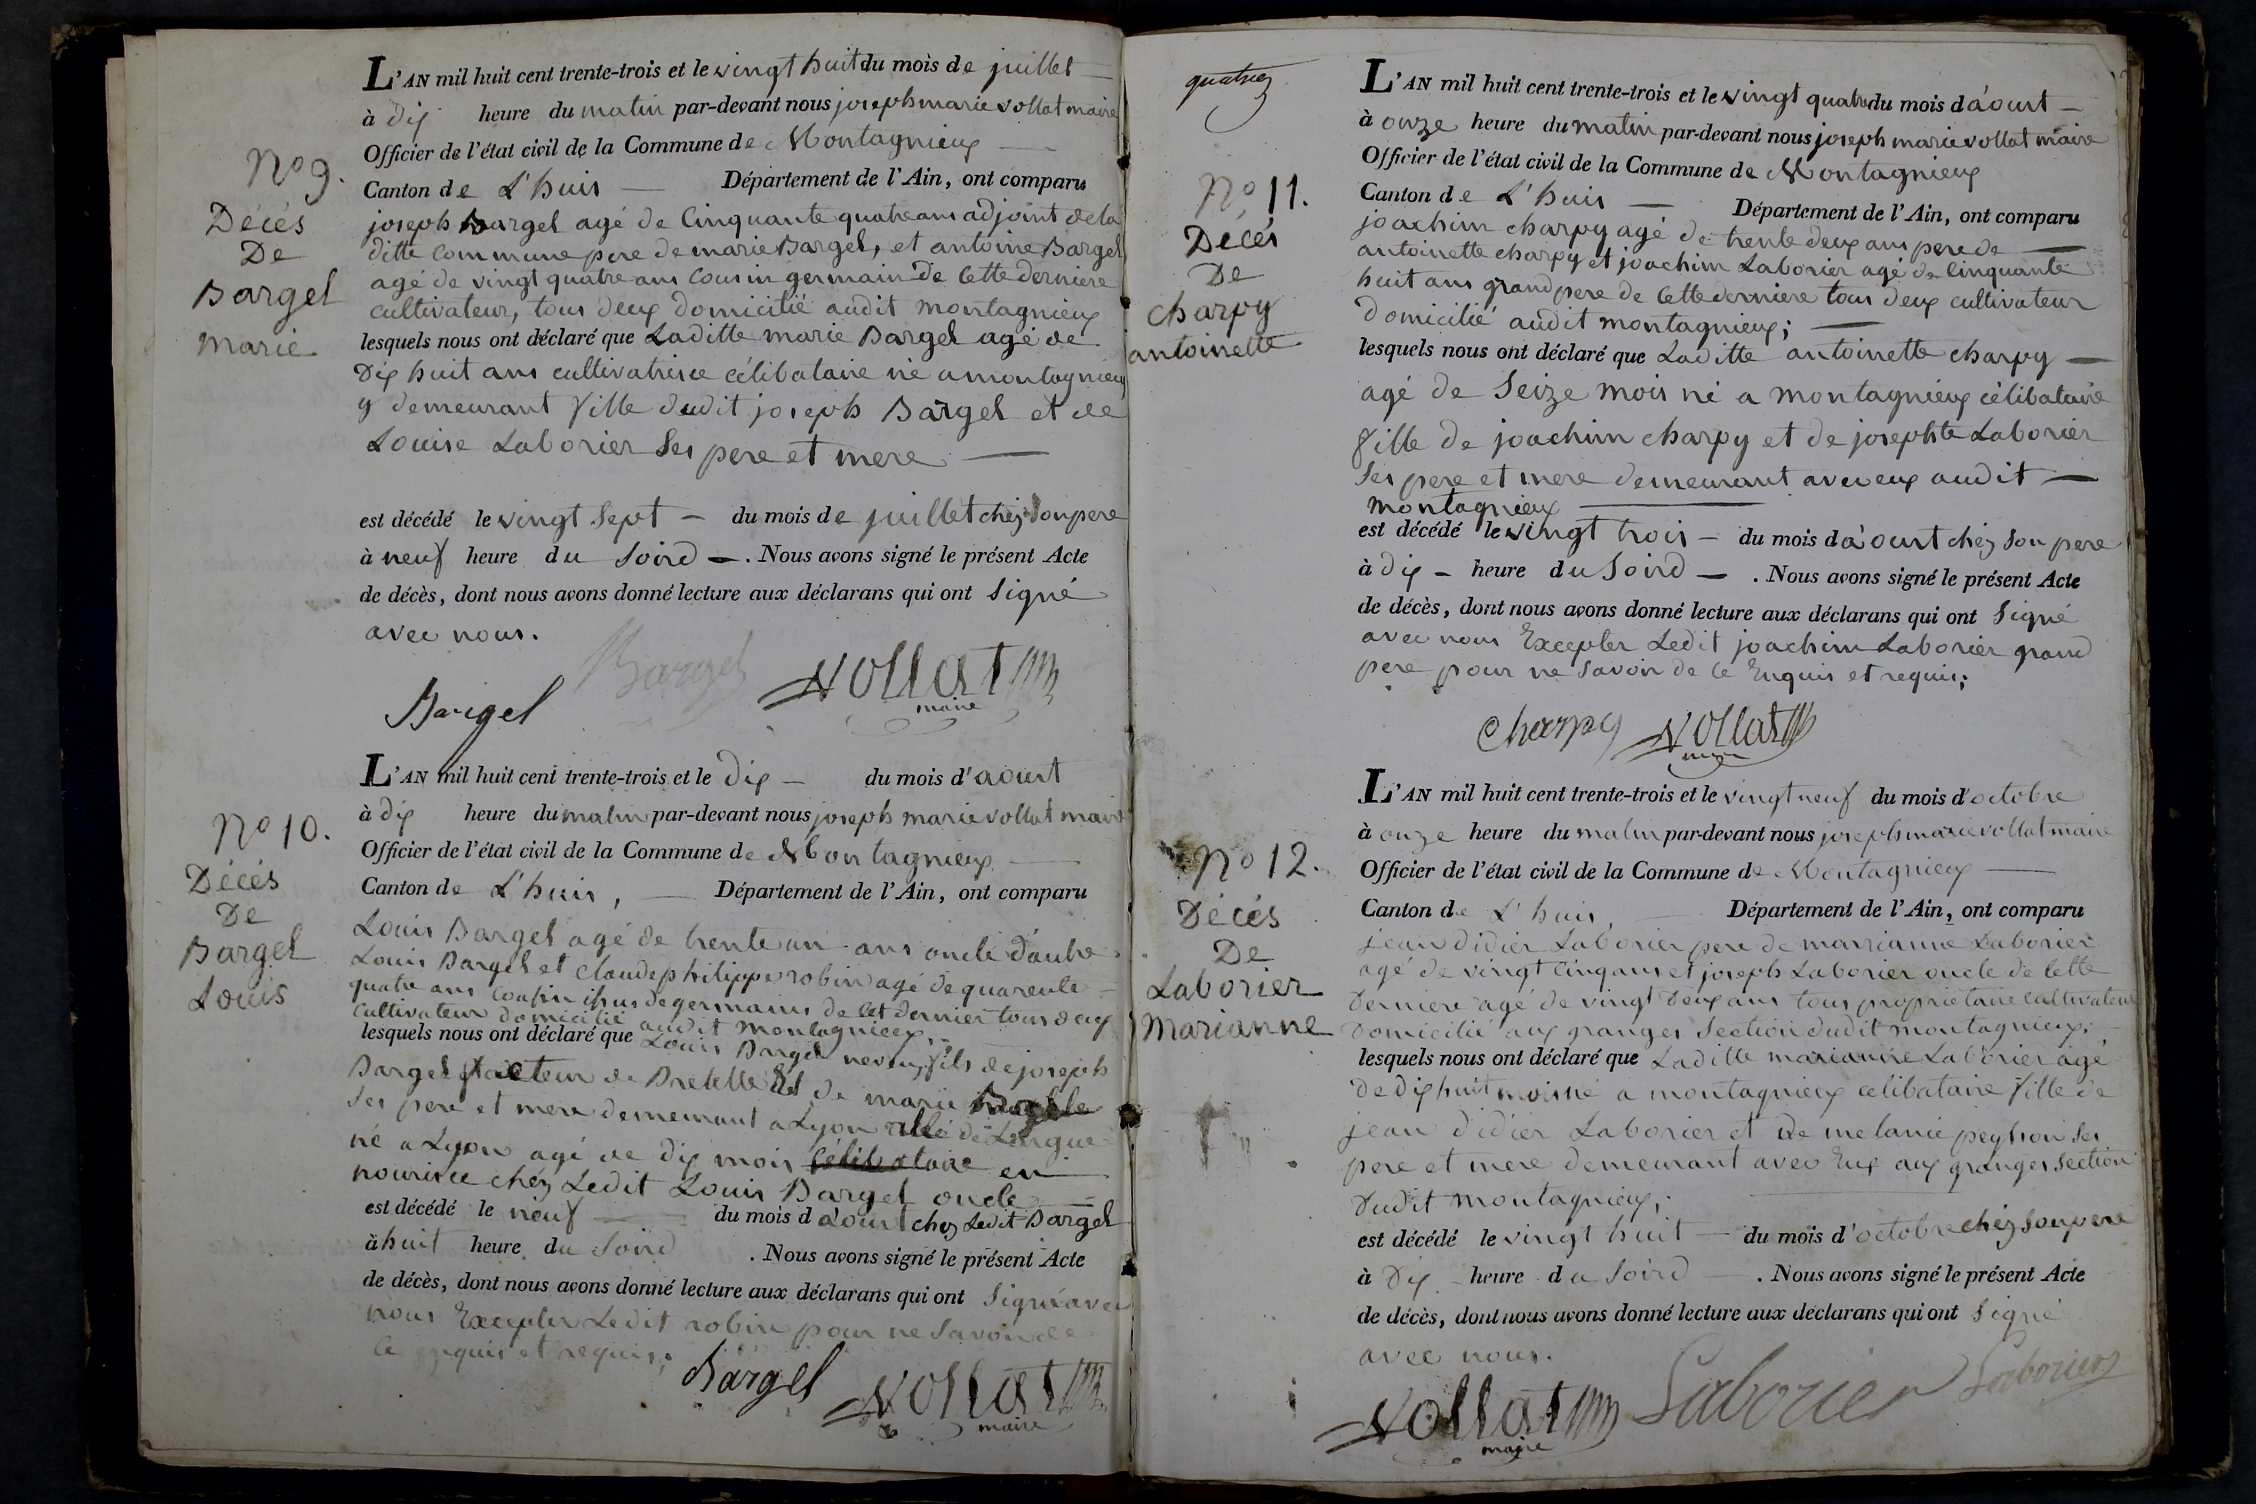 L'AN mil huit cent trente-trois et le vingt huit du mois de juillet
à dix heure du matin par-devant nous joseph marie vollat maire
Officier de l'état civil de la Commune de Montagnieux
Canton de L'huis Département de l'Ain, ont comparu
joseph Bargel agé de Cinquante quatre ans adjoint de la
ditte Commune pere de marie Bargel, et antoine Bargel
agé de vingt quatre ans Cousin germain de Cette derniere
cultivateur, tous deux domicilié audit montagnieux
lesquels nous ont déclaré que Laditte marie Bargel agé de
Dix huit ans cultivatrice célibataire né a montagnieux
y demeurant fille dudit joseph Bargel et de
Louise Laborier Ses pere et mere
est décédé le vingt Sept du mois de juillet chéz Son pere
à neuf heure du Soird. Nous avons signé le présent Acte
de décès, dont nous avons donné lecture aux déclarans qui ont Signé
avec nous.
Bargel
Bargel
vollat
maire
No 9.
Décés
De
Bargel
marie
L'AN mil huit cent trente-trois et le dix du mois d'aoust
à dix heure du matin par-devant nous joseph marie vollat maire
Officier de l'état civil de la Commune de Montagnieux
Canton de L'huis, Département de l'Ain, ont comparu
Louis Bargel agé de trente un ans oncle d'autre
Louis Bargel et Claude philippe robin agé de quarente
quatre ans Cousin issus de germains de Cet dernier tous deux
Cultivateur domicilié audit montagnieux;
lesquels nous ont déclaré que Louis Bargel neveux, fils de joseph
Bargel facteur de Bretelle et de marie
Ses pere et mere demeurant a Lyon de
né a Lyon agé de dix mois célibataire en
nourisce chéz Ledit Louis Bargel oncle
est décédé le neuf du mois d'aoust chez Ledit Bargel
à huit heure du Soird. Nous avons signé le présent Acte
de décès, dont nous avons donné lecture aux déclarans qui ont Signé avec
nous Excepter Ledit robin pour ne Savoir de
Ce enquis et requis;
Bargel
vollat
maire
No 10.
Décés
De
Bargel
Louis
quatre
L'AN mil huit cent trente-trois et le vingt quatre du mois d'aoust
à onze heure du matin par-devant nous joseph marie vollat maire
Officier de l'état civil de la Commune de Montagnieux
Canton de L'huis Département de l'Ain, ont comparu
joachim charpy agé de trente deux ans pere de
antoinette charpy et joachim Laborier agé de Cinquante
huit ans grand pere de Cette derniere tous deux cultivateur
Domicilié audit montagnieux;
lesquels nous ont déclaré que Laditte antoinette charpy
agé de Seize mois né a montagnieux célibataire
fille de joachim charpy et de josephte Laborier
Ses pere et mere demeurant avec eux audit
montagnieux
est décédé le vingt trois du mois d'aoust chéz Son pere
à dix heure du Soird. Nous avons signé le présent Acte
de décès, dont nous avons donné lecture aux déclarans qui ont Signé
avec nous Excepter Ledit joachim Laborier grand
pere pour ne Savoir de Ce Enquis et requis;
Charpy
vollat
No 11.
Décés
De
charpy
antoinette
L'AN mil huit cent trente-trois et le vingt neuf du mois d'octobre
à onze heure du matin par-devant nous joseph marie vollat maire
Officier de l'état civil de la Commune de Montagnieux
Canton de L'huis, Département de l'Ain, ont comparu
jean didier Laborier pere de marianne Laborier
agé de vingt Cinq ans et joseph Laborier oncle de Cette
Derniere agé de vingt Deux ans tous proprietaire Cultivateur
Domicilié aux granges Section dudit montagnieux;
lesquels nous ont déclaré que Laditte marianne Laborier agé
de dix huit mois né a montagnieux celibataire fille de
jean Didier Laborier et de melanie peysson Ses
pere et mere demeurant avec Eux aux granges Section
Dudit montagnieux;
est décédé le vingt huit du mois d'octobre chéz Son pere
à Dix heure du Soird. Nous avons signé le présent Acte
de décès, dont nous avons donné lecture aux déclarans qui ont Signé
avec nous.
vollat
maire
Laborier
Laborier
No 12.
Décés
De
Laborier
Marianne